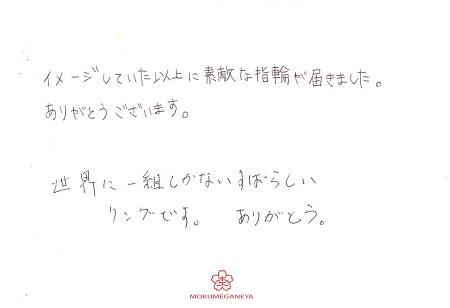 イメージしていた以上に素敵な指輪が届きました。
ありがとうございます。
世界に一組しかないすばらしい
リングです。 ありがとう。
MOKUMEGANEYA